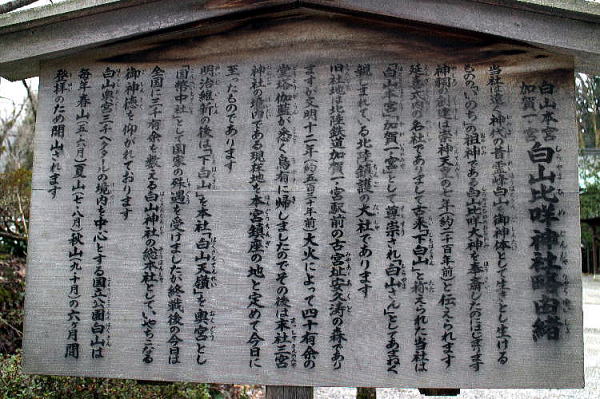 白山本宮
加賀一宮
白山比咩神社略由緒
当社は遠い神代の昔霊峰白山を御神体として生きとし生ける
ものの「いのち」の祖神である白山比咩大神を奉斎したのにはじまります
神祠の創建は崇神天皇の七年(約二千百年前)と伝えられます
延喜式内の名社でありまして古来「下白山」と称えられた当社は
「白山本宮」「加賀一宮」として尊崇され「白山さん」としてあまねく
親しまれている北陸鎮護の大社であります
旧社地は北陸鉄道加賀一宮駅前の古宮址安久濤の森であり
ますが文明十二年(約五百年前)大火によって四十有余の
堂塔伽藍が悉く烏有に帰しましたのでその後は末社三宮
神社の境内である現在地を本宮鎮座の地と定めて今日に
至ったものであります
明治維新の後は「下白山」を本社「白山天嶺」を奥宮とし
「国幣中社」として国家の殊遇を受けましたが終戦後の今日は
全国三千有余を数える白山神社の総本社として、いやちこなる
御神徳を仰がれております
白山は奥宮三千ヘクタールの境内を中心とする国立公園白山は
毎年春山(五・六月)夏山(七・八月)秋山(九・十月)の六ヶ月間
登拝のため開山されます